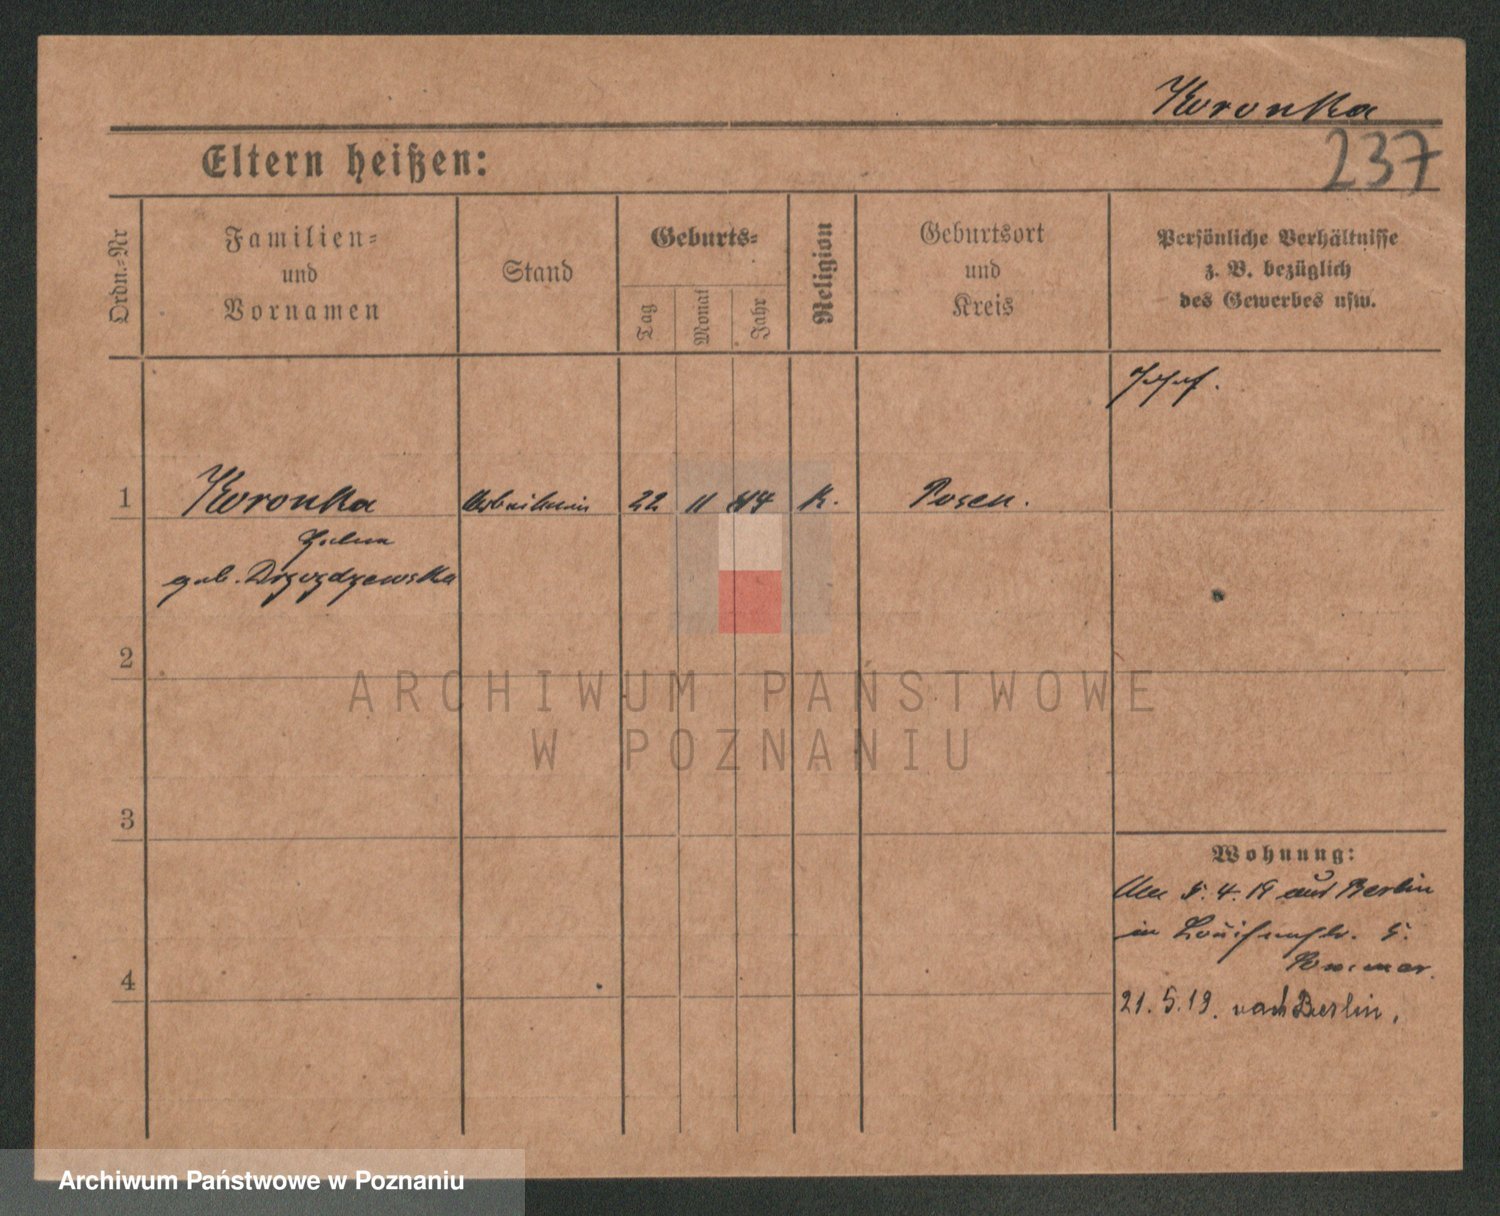 Koronka
237
Eltern heißen:
Ordn.-Nr
Familien-
und
Vornamen
Stand
Geburts-
Tag
Monat
Jahr
Religion
Geburtsort
und
Kreis
Persönliche Verhältnisse
z. B. bezüglich
des Gewerbes usw.
1
Koronka
Arbeiterin
22
11
K.
Posen.
geb. Drzozdzewska
2
ARCHIWUM PAŃSTWOWE
W POZNANIU
3
Wohnung:
5. 4. 19 aus Berlin
in Louisenstr. 5.
4
21. 5. 19. nach Berlin.
Archiwum Państwowe w Poznaniu